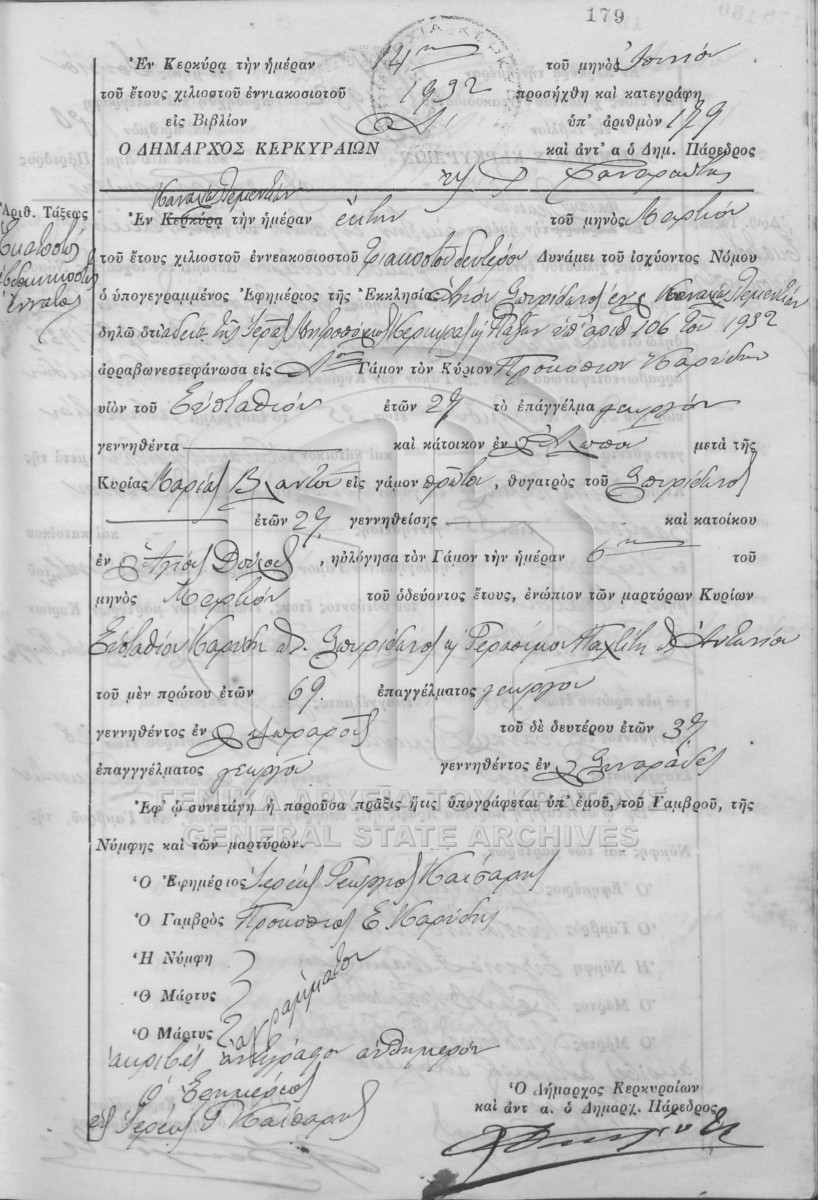 179
Ἐν Κερκύρᾳ τὴν ἡμέραν 14ην τοῦ μηνὸς Ἰουνίου
τοῦ ἔτους χιλιοστοῦ ἐννιακοσιοτοῦ 1932 προσήχθη καὶ κατεγράφη
εἰς Βιβλίον Δ. ὑπ' ἀριθμὸν 179
Ο ΔΗΜΑΡΧΟΣ ΚΕΡΚΥΡΑΙΩΝ καὶ ἀντ' α ὁ Δημ. Πάρεδρος
Ἀριθ. Τάξεως
Ἑκατοστὸς
ἑβδομηκοστὸς
ἔννατος
Ἐν Κερκύρᾳ τὴν ἡμέραν ἕκτην τοῦ μηνὸς Μαρτίου
τοῦ ἔτους χιλιοστοῦ ἐννεακοσιοστοῦ τριακοστοῦ δευτέρου Δυνάμει τοῦ ἰσχύοντος Νόμου
ὁ ὑπογεγραμμένος Ἐφημέριος τῆς Ἐκκλησίας Ἁγίου Σπυρίδωνος ἐν
δηλῶ ὅτι ἀδείᾳ τῆς Ἱερᾶς Μητροπόλεως Κερκύρας ϗ Παξῶν ὑπ' ἀριθ 106 τοῦ 1932
ἀρραβωνεστεφάνωσα εἰς Αον Γάμον τὸν Κύριον Προκόπιον Καρύδην
υἱὸν τοῦ Εὐσταθίου ἐτῶν 27 τὸ ἐπάγγελμα γεωργὸν
γεννηθέντα καὶ κάτοικον ἐν μετὰ τῆς
Κυρίας Μαρίας Βλάντου εἰς γάμον πρῶτον, θυγατρὸς τοῦ Σπυρίδωνος
ἐτῶν 27. γεννηθείσης καὶ κατοίκου
ἐν Ἁγίους Δούλους, ηὐλόγησα τὸν Γάμον τὴν ἡμέραν 6ην τοῦ
μηνὸς Μαρτίου τοῦ ὁδεύοντος ἔτους, ἐνώπιον τῶν μαρτύρων Κυρίων
Εὐσταθίου Καρύδη Σπυρίδωνος ϗ Γερασίμου Ἀντωνίου
τοῦ μὲν πρώτου ἐτῶν 69. ἐπαγγέλματος γεωργοῦ
γεννηθέντος ἐν τοῦ δὲ δευτέρου ἐτῶν 37
ἐπαγγγέλματος γεωργοῦ γεννηθέντος ἐν Σιναράδες
Ἐφ' ᾧ συνετάγη ἡ παροῦσα πρᾶξις ἥτις ὑπογράφεται ὑπ' ἐμοῦ, τοῦ Γαμβροῦ, τῆς
ΓΕΝΙΚΑ ΑΡΧΕΙΑ ΤΟΥ ΚΡΑΤΟΥΣ
GENERAL STATE ARCHIVES
Νύμφης καὶ τῶν μαρτύρων.
Ὁ Ἐφημέριος Ἱερεὺς Γεώργιος Καίσαρης
Ὁ Γαμβρὸς Προκόπιος Ε. Καρύδης
Ἡ Νύμφη
Ὁ Μάρτυς
Ὁ Μάρτυς ἀγράμματοι
ἀκριβὲς ἀντίγραφον αὐθημερόν
ὁ Ἐφημέριος
Ἱερεὺς Γ Καίσαρης
Ὁ Δήμαρχος Κερκυραίων
καὶ ἀντ α. ὁ Δημαρχ. Πάρεδρος